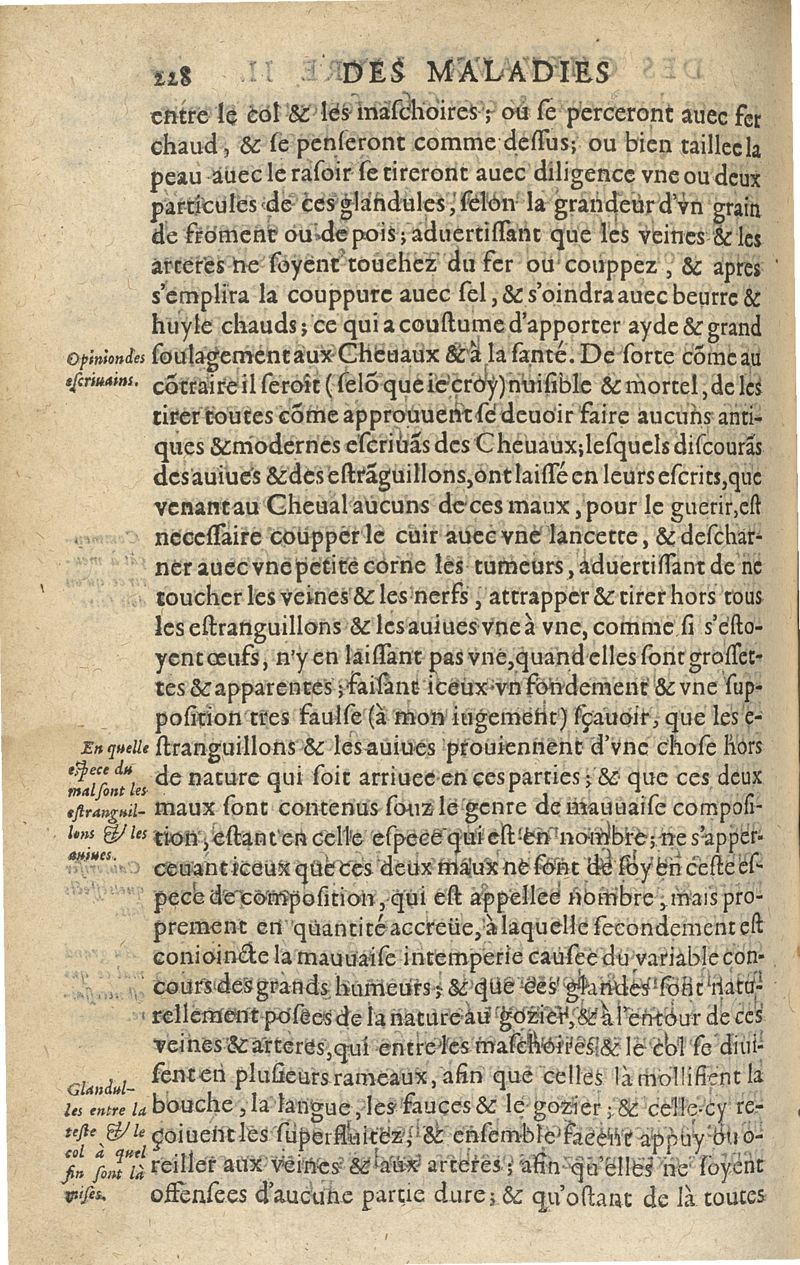 228 DES MALADIES
entre le col & les maschoires; où se perceront auec fer
chaud, & se penseront comme dessus; ou bien taillee la
peau auec le rasoir se tireront auec diligence vne ou deux
particules de ces glandules, selon la grandeur d'vn grain
de froment ou de pois; aduertissant que les veines & les
arteres ne soyent touchez du fer ou couppez, & apres
s'emplira la couppure auec sel, & s'oindra auec beurre &
huyle chauds; ce qui a coustume d'apporter ayde & grand
Opinion des
escriuains.
soulagement aux Cheuaux & à la santé. De sorte cõme au
cõtraire il seroit (selõ que ie croy) nuisible & mortel, de les
tirer toutes cõme approuuent se deuoir faire aucuns anti-
ques & modernes escriuãs des Cheuaux; lesquels discourãs
des auiues & des estrãguillons, ont laissé en leurs escrits, que
venant au Cheual aucuns de ces maux, pour le guerir, est
necessaire coupper le cuir auec vne lancette, & deschar-
ner auec vne petite corne les tumeurs, aduertissant de ne
toucher les veines & les nerfs, attrapper & tirer hors tous
les estranguillons & les auiues vne à vne, comme si s'esto-
yent œufs, n'y en laissant pas vne, quand elles sont grosset-
tes & apparentes; faisant iceux vn fondement & vne sup-
position tres faulse (à mon iugement) sçauoir, que les e-
En quelle
espece du
mal sont les
estranguil-
lons & les
auiues.
stranguillons & les auiues prouiennent d'vne chose hors
de nature qui soit arriuee en ces parties; & que ces deux
maux sont contenus souz le genre de mauuaise composi-
tion, estant en celle espece qui est en nombre; ne s'apper-
ceuant iceux que ces deux maux ne sont de soy en ceste es-
pece de composition, qui est appellee nombre, mais pro-
prement en quantité accreüe, à laquelle secondement est
conioincte la mauuaise intemperie causee du variable con-
cours des grands humeurs; & que ces glandes sont natu-
rellement posees de la nature au gozier, & à l'entour de ces
veines & arteres, qui entre les maschoires & le col se diui-
sent en plusieurs rameaux, afin que celles là mollifient la
Glandul-
les entre la
teste & le
col à quel
fin sont là
mises.
bouche, la langue, les fauces & le gozier; & celle-cy re-
çoiuent les superfluitez; & ensemble facent appuy ou o-
reiller aux veines & aux arteres; afin qu'elles ne soyent
offensees d'aucune partie dure; & qu'ostant de là toutes